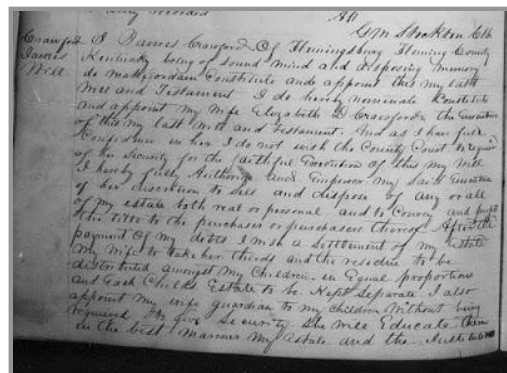 duly recorded
Att
C M Stockton Clk
Crawford
James
Will
I James Crawford Of Flemingsburg Fleming County
Kentucky being of sound mind and disposing memory
do make ordain Constitute and appoint this my last
Will and Testament I do hereby nominate Constitute
and appoint my wife Elizabeth D Crawford the Executrix
of this my last Will and Testament. And as I have full
Confidence in her I do not wish the County Court to require
of her Security for the faithful Execution of this my Will
I hereby fully Authorize and Empower my said Executrix
of her discretion to sell and dispose of any or all
of my estate both real or personal and to Convey and
the title to the purchaser or purchasers thereof After the
payment Of my debts I wish a Settlement of my estate
my wife to take her thirds and the residue to be
distributed amongst my Children in Equal proportions
and Each Childs Estate to be Kept Separate I also
appoint my wife guardian to my children without being
required to give Security She will Educate them
in the best manner My estate and the